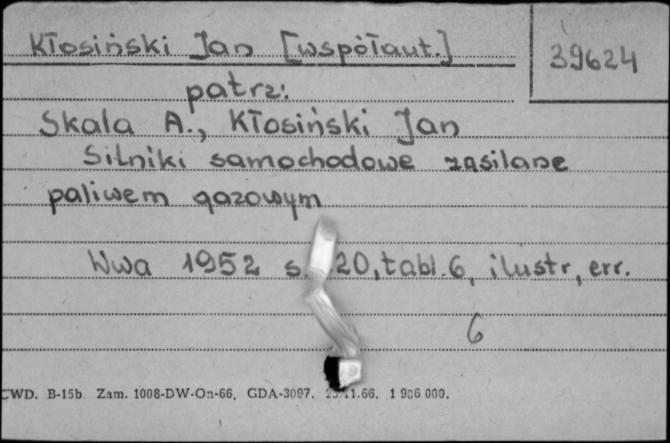 Kłosiński Jan [współaut.]
39624
patrz:
Skala A., Kłosiński Jan
Silniki samochodowe zasilane
paliwem gazowym
Wwa 1952 s. 20, tabl. 6, ilustr, err.
6
CWD. B-15b. Zam. 1008-DW-On-66. GDA-3097. 11.66. 000.